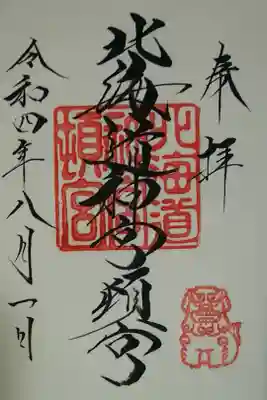 奉拝
北海道神宮頓宮
北海道神宮頓宮
令和四年八月一日